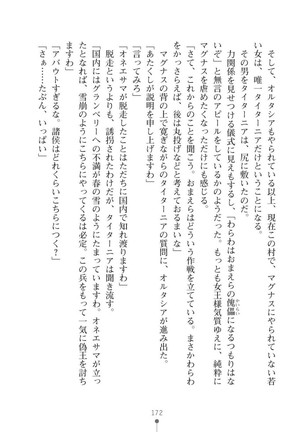 そして、オルタシアもやられている以上、現在この村で、マグナスにやられていない若
い女は、唯一タイターニアだけということになる。
その男をタイターニアは、尻に敷いたのだ。
力関係を見せつける儀式に見えもするし、「わらわはおまえらの傀儡になるつもりはな
いぞ」と無言のアピールをしているかのようだった。もっとも女王様気質ゆえに、純粋に
マグナスを虐めたくなっただけにも感じる。
「さて、これからのことを聞こう。おまえらはどういう作戦を立てている。まさかわらわ
さえかつげば、後は丸投げなどと考えておるまいな」
マグナスの背の上で寛ぎながらのタイターニアの質問に、オルタシアが進み出た。
「あたくしが説明を申し上げますわ」
「言ってみろ」
「オネエサマが脱走したことはただちに国内で知れ渡りますわ」
脱走というよりも、誘拐されたわけだが、タイターニアは聞き流す。
「国内にはグランベリーへの不満が春の雪のようにたまっていますわ。オネエサマが立っ
たら、雪崩のようにこちらにやってくるは必定、この兵をもって一気に偽王を討ち
ますわ」
「アバウトすぎるな。諸侯はどれくらいこちらにつく？」
「さぁ……たぶん、いっぱい」
172